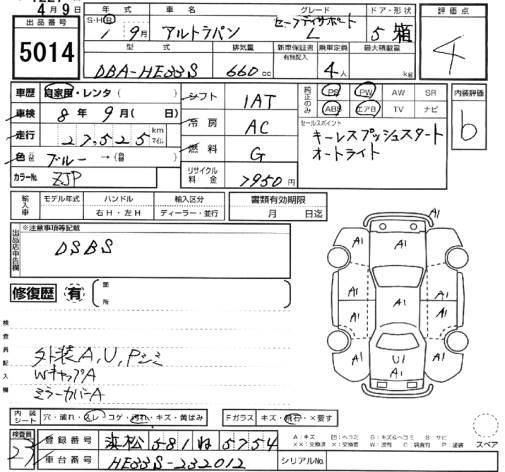 4月9日
出品番号 5014
年式 車名 グレード ドア・形状
S・H 1年 9月 アルトラパン セーフティサポート L 5 箱
型式 排気量 新車保証書 乗車定員 最大積載量
有無記入
DBA-HE33S 660cc 4人 kg
評価点
4
車歴 自家用・レンタ( )
車検 8年 9月( 日)
走行 27,525 km マイル
色 ブルー → (色替)
カラーNo. ZJP
シフト 1AT
冷房 AC
燃料 G
リサイクル料金 7950円
純正のみ PS PW AW SR
ABS エアB TV ナビ
内装評価
b
セールスポイント
キーレスプッシュスタート
オートライト
輸入車 モデル年式 ハンドル 輸入区分
年 右H・左H ディーラー・並行
書類有効期限
月 日迄
出品店申告欄
※注意事項等記載
DSBS
修復歴 有 箇所
検査員記入欄
外装A,U,Pシミ
WキャップA
ミラーカバーA
A1 A1 A1
A1 A1 A1
A1 U1 A1
内装シート 穴・破れ・スレ・コゲ・汚れ・キズ・黄ばみ
Fガラス キズ・飛石・×要す
検査員 23
登録番号 浜松 581 ね 5754
車台番号 HE33S-232012
シリアルNo.
A:キズ U:ヘコミ B:キズ&ヘコミ S:サビ
XX:交換済 X:交換要 W:波有 C:腐食有 P:塗装
スペア